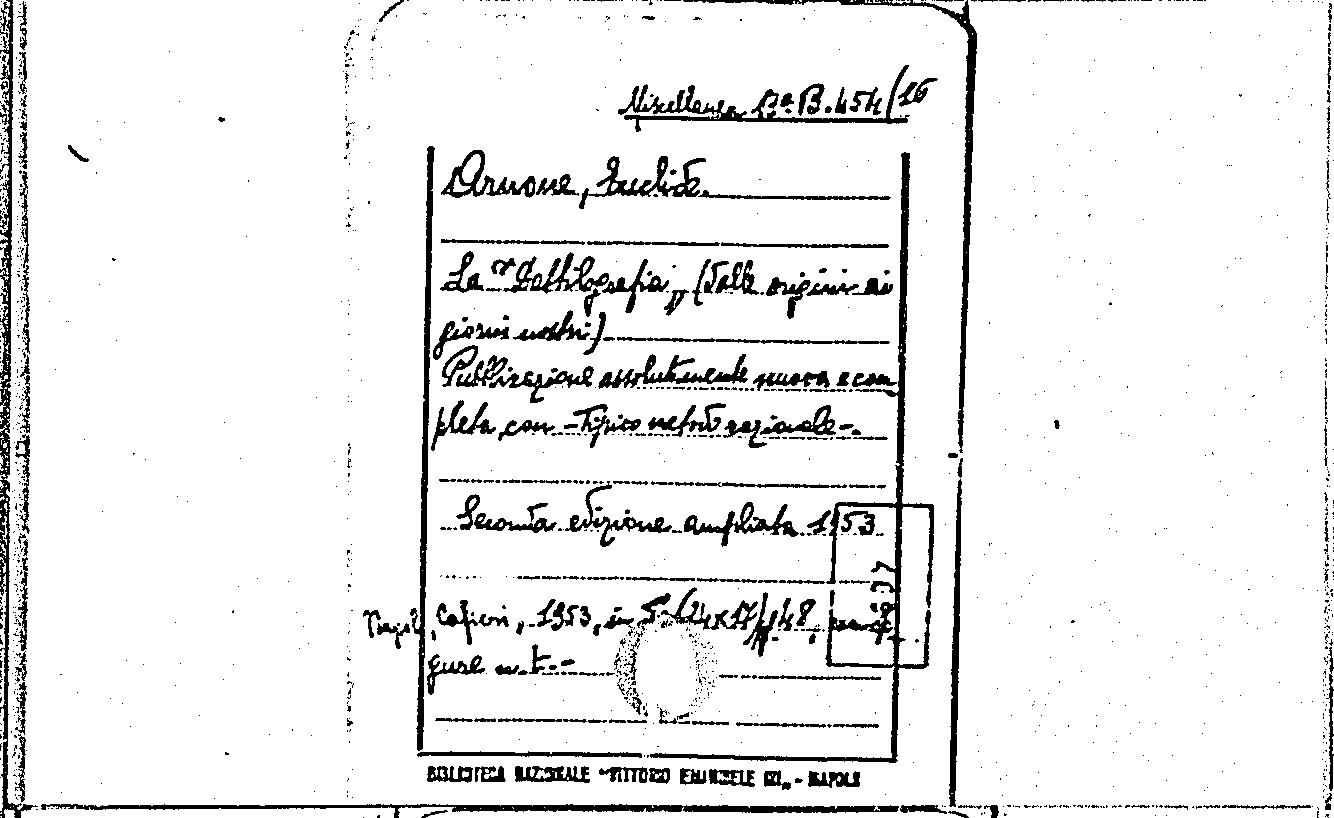 Miscellanea Bª. B. 454/16
Arnone, Euclide.
La "Dattilografia" (dalle origini ai
giorni nostri)
Pubblicazione assolutamente nuova e com
pleta, con -Tipico metodo razionale-.
Seconda edizione ampliata 1953
Napoli, 1953, in 5º (24x17) pp. 48, con fi
gure n. t.-
BIBLIOTECA NAZIONALE "VITTORIO EMANUELE III" - NAPOLI